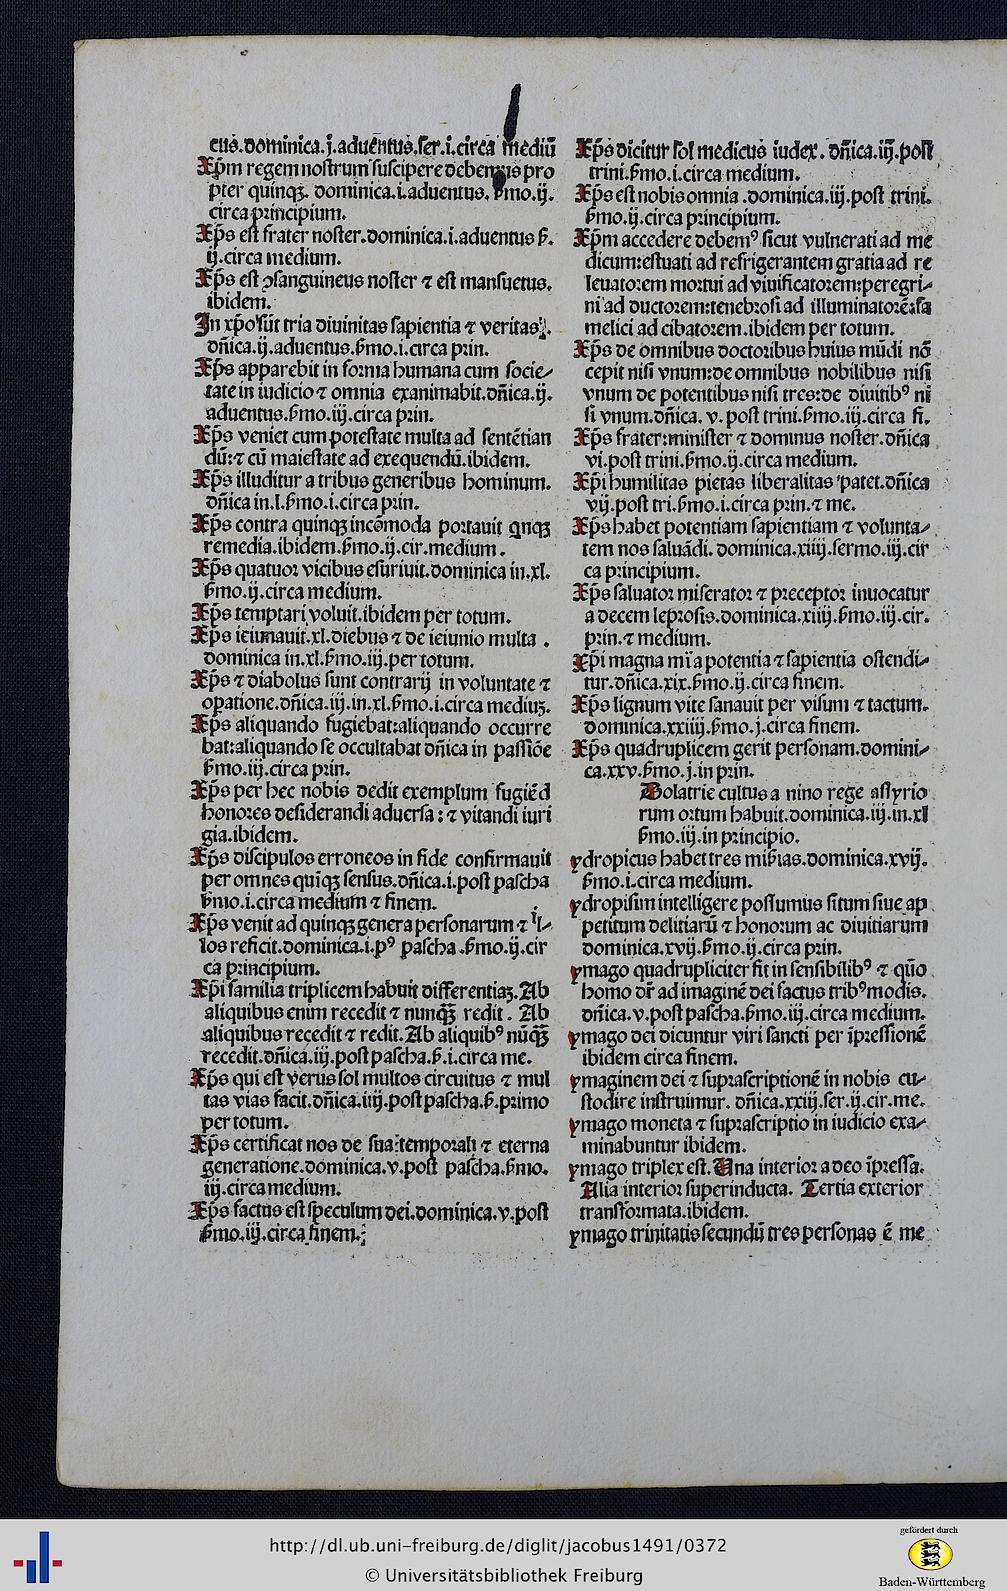 eus.dominica.j.aduentus.ser.i.circa mediū
Xp̄m regem nostrum suscipere debemus pro
pter quinqꝫ. dominica.i.aduentus. ẜmo.ij.
circa principium.
Xp̄s est frater noster.dominica.i.aduentus ẜ.
ij.circa medium.
Xp̄s est ꝯsanguineus noster ⁊ est mansuetus.
ibidem.
In xp̄o sūt tria diuinitas sapientia ⁊ veritas.
dn̄ica.ij.aduentus.ẜmo.i.circa prin.
Xp̄s apparebit in forma humana cum socie/
tate in iudicio ⁊ omnia exanimabit.dn̄ica.ij.
aduentus.ẜmo.iij.circa prin.
Xp̄s veniet cum potestate multa ad sentētian
dū:⁊ cū maiestate ad exequendū.ibidem.
Xp̄s illuditur a tribus generibus hominum.
dn̄ica in.l.ẜmo.i.circa prin.
Xp̄s contra quinqꝫ incōmoda portauit qnqꝫ
remedia.ibidem.ẜmo.ij.cir.medium.
Xp̄s quatuor vicibus esuriuit.dominica in.xl.
ẜmo.ij.circa medium.
Xp̄s temptari voluit.ibidem per totum.
Xp̄s ieiunauit.xl.diebus ⁊ de ieiunio multa .
dominica in.xl.ẜmo.iij.per totum.
Xp̄s ⁊ diabolus sunt contrarij in voluntate ⁊
opatione.dn̄ica.iij.in.xl.ẜmo.i.circa mediuꝫ.
Xp̄s aliquando fugiebat:aliquando occurre
bat:aliquando se occultabat dn̄ica in passiōe
ẜmo.iij.circa prin.
Xp̄s per hec nobis dedit exemplum fugiēd
honores desiderandi aduersa : ⁊ vitandi iuri
gia.ibidem.
Xp̄s discipulos erroneos in fide confirmauit
per omnes quīqꝫ sensus.dn̄ica.i.post pascha
ẜmo.i.circa medium ⁊ finem.
Xp̄s venit ad quinqꝫ genera personarum ⁊ il/
los reficit.dominica.i.pꝰ pascha .ẜmo.ij.cir
ca principium.
Xp̄i familia triplicem habuit differentiaꝫ. Ab
aliquibus enim recedit ⁊ nunqꝫ̄ redit . Ab
aliquibus recedit ⁊ redit. Ab aliquibꝰ nūqꝫ̄
recedit.dn̄ica.iij.post pascha.ẜ.i.circa me.
Xp̄s qui est verus sol multos circuitus ⁊ mul
tas vias facit.dn̄ica.iiij.post pascha.ẜ.primo
per totum.
Xp̄s certificat nos de sua:temporali ⁊ eterna
generatione.dominica.v.post pascha.ẜmo.
iij.circa medium.
Xp̄s factus est speculum dei.dominica.v.post
ẜmo.iij.circa finem.
Xp̄s dicitur sol medicus iudex. dn̄ica.iij.post
trini.ẜmo.i.circa medium.
Xp̄s est nobis omnia .dominica.iij.post trini.
ẜmo.ij.circa principium.
Xp̄m accedere debemꝰ sicut vulnerati ad me
dicum:estuati ad refrigerantem gratia ad re
leuatorem mortui ad viuificatorem:peregri/
ni ad ductorem:tenebrosi ad illuminatorē:fa
melici ad cibatorem.ibidem per totum.
Xp̄s de omnibus doctoribus huius mūdi nō
cepit nisi vnum:de omnibus nobilibus nisi
vnum de potentibus nisi tres:de diuitibꝰ ni
si vnum.dn̄ica. v. post trini.ẜmo.iij.circa fi.
Xp̄s frater:minister ⁊ dominus noster.dn̄ica
vi.post trini.ẜmo.ij.circa medium.
Xp̄i humilitas pietas liberalitas patet.dn̄ica
vij.post tri.ẜmo.i.circa prin.⁊ me.
Xp̄s habet potentiam sapientiam ⁊ volunta/
tem nos saluādi. dominica.xiiij.sermo.iij.cir
ca principium.
Xp̄s saluator miserator ⁊ preceptor inuocatur
a decem leprosis.dominica.xiiij.ẜmo.iij.cir.
prin.⁊ medium.
Xp̄i magna mīa potentia ⁊ sapientia ostendi/
tur.dn̄ica.xix.ẜmo.ij.circa finem.
Xp̄s lignum vite sanauit per visum ⁊ tactum.
dominica.xxiiij.ẜmo.j.circa finem.
Xp̄s quadruplicem gerit personam.domini/
ca.xxv.ẜmo.j.in prin.
Dolatrie cultus a nino rege assyrio
rum ortum habuit.dominica.iij.in.xl
ẜmo.iij.in principio.
ydropicus habet tres miẜias.dominica.xvij.
ẜmo.i.circa medium.
ydropisim intelligere possumus situm siue ap
petitum delitiarū ⁊ honorum ac diuitiarum
dominica.xvij.ẜmo.ij.circa prin.
ymago quadrupliciter fit in sensibilibꝰ ⁊ qūo
homo dr̄ ad imaginē dei factus tribꝰ modis.
dn̄ica.v.post pascha.ẜmo.iij.circa medium.
ymago dei dicuntur viri sancti per īpressionē
ibidem circa finem.
ymaginem dei ⁊ suprascriptionē in nobis cu/
stodire instruimur. dn̄ica.xxiij.ser.ij.cir.me.
ymago moneta ⁊ suprascriptio in iudicio exa/
minabuntur ibidem.
ymago triplex est. Una interior a deo īpressa.
Alia interior superinducta. Tertia exterior
transformata.ibidem.
ymago trinitatis secundū tres personas ē me
http://dl.ub.uni-freiburg.de/diglit/jacobus1491/0372
© Universitätsbibliothek Freiburg
gefördert durch
Baden-Württemberg